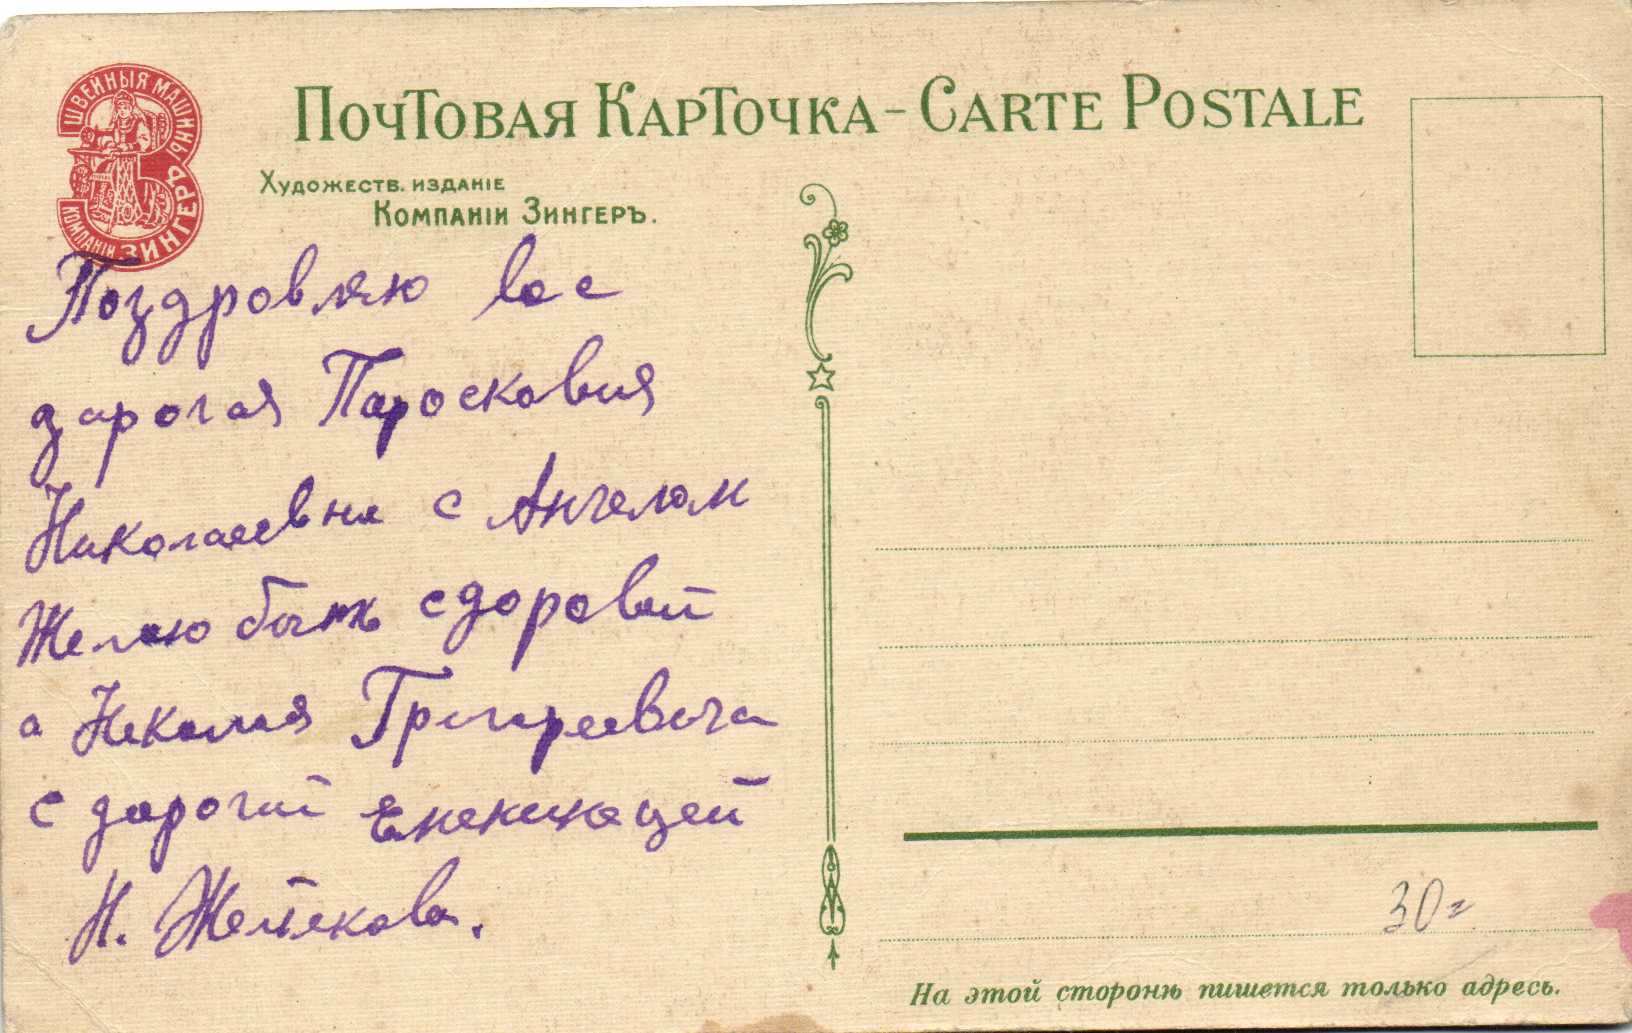 ШВЕЙНЫЯ МАШИНЫ
КОМПАНІИ ЗИНГЕРЪ
Почтовая Карточка - Carte Postale
Художеств. издание
Компаніи Зингеръ.
Поздровляю вас
дарогая Пароскавия
Николаевна с Ангелом
Желаю быть сдоровай
а Николая Григореевича
с дарогой
Н.
30 г
На этой сторонѣ пишется только адресъ.